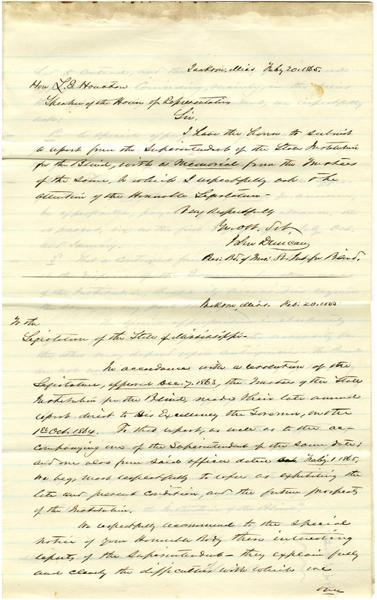 Jackson, Miss. Feby 20. 1865.
Hon L. E. Houston
Speaker of the House of Representatives
Sir.
I have the honor to submit
a report from the Superintendent of the State Institution
for the Blind, with a Memorial from the Trustees
of the same, to which I respectfully ask the
attention of the Honorable Legislature—
Very Respectfully
Yr. Obt. Svt.
John Duncan
Jackson, Miss. Feb. 20. 1865
To the
Legislature of the State of Mississippi.
In accordance with a resolution of the
Legislature, approved Dec. 7. 1863, the Trustees of the State
Institution for the Blind, made their late annual
report direct to His Excellency the Governor, on the
1st Oct. 1864. To this report, as well as to the ac-
companying one of the Superintendent of the same date;
and one also from said officer dated Feby 1 1865,
we beg most respectfully to refer as exhibiting the
late and present condition, and the future prospects
of the Institution.
We respectfully recommend to the special
notice of your Honorable Body these interesting
reports of the Superintendent — they explain fully
and clearly the difficulties with which we
over